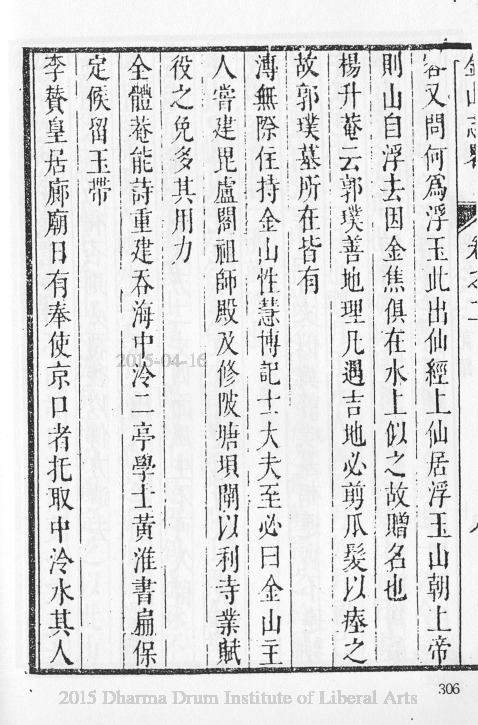 金山志畧
卷之二
客又問何爲浮玉此出仙經上仙居浮玉山朝上帝
則山自浮去因金焦俱在水上似之故贈名也
楊升菴云郭璞善地理凡遇吉地必剪瓜髮以瘞之
故郭璞墓所在皆有
溥無際住持金山性慧博記士大夫至必曰金山主
人嘗建毘盧閣祖師殿及修陂塘垻閘以利寺業賦
役之免多其用力
全體菴能詩重建吞海中冷二亭學士黃淮書扁保
定候留玉帶
李贊皇居廊廟日有奉使京口者托取中泠水其人
2015-04-16
306
2015 Dharma Drum Institute of Liberal Arts